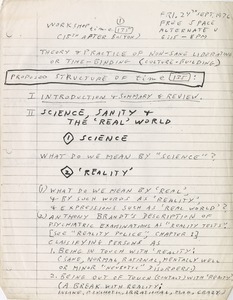 FRI. 24TH SEPT. 1976
①
WORKSHOP
time (IDF)
FREE SPACE
ALTERNATE U
THEORY & PRACTICE OF NON-SANE LIBERATION
OR TIME-BINDING (CULTURE-BUILDING)
PROPOSED STRUCTURE OF time (IDF):
I INTRODUCTION & SUMMARY & REVIEW.
II SCIENCE, SANITY &
THE 'REAL' WORLD
① SCIENCE
WHAT DO WE MEAN BY "SCIENCE"?
② 'REALITY'
WHAT DO WE MEAN BY 'REAL',
& BY SUCH WORDS AS "REALITY",
& EXPRESSIONS SUCH AS 'REAL WORLD'?
ANTHONY BRANDT'S DESCRIPTION OF
PSYCHIATRIC EXAMINATIONS AS "REALITY TESTS".
[SEE "REALITY POLICE", CHAPTER 1]
CLASSIFYING PERSONS AS
1. BEING IN TOUCH WITH 'REALITY'
(SANE, NORMAL, RATIONAL, MENTALLY WELL
OR MINOR "NEUROTIC" DISORDERS)
2. BEING OUT OF TOUCH (CONTACT) WITH 'REALITY'
(A BREAK WITH REALITY;
INSANE, PSYCHOTIC, IRRATIONAL, MAD, CRAZY)